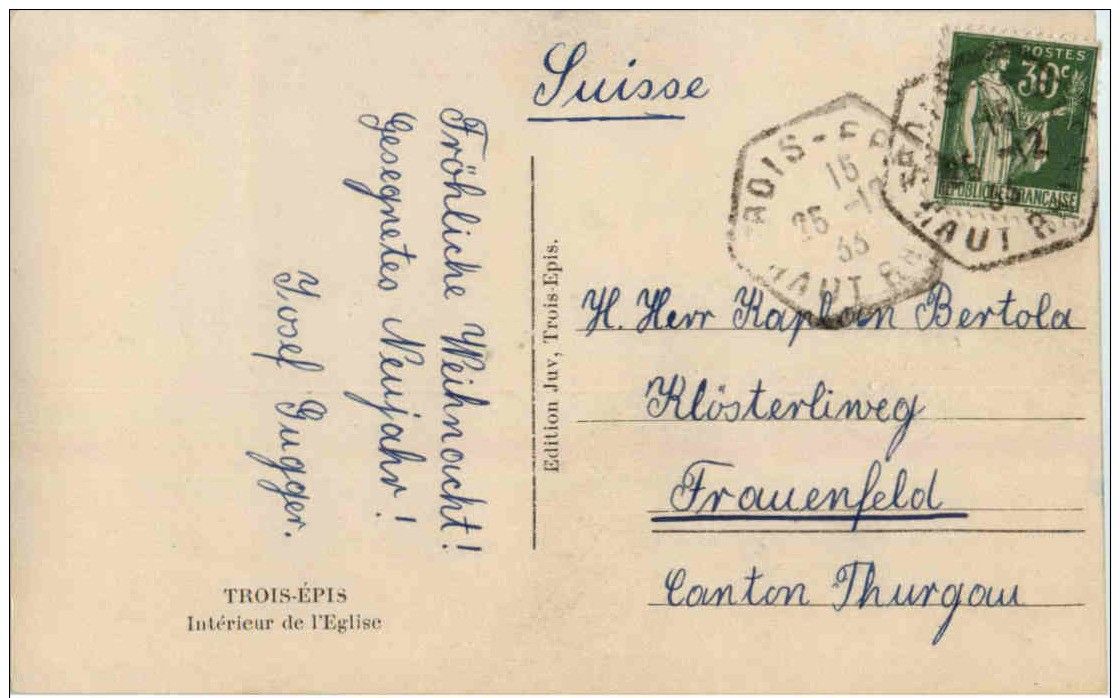 Suisse
Fröhliche Weihnacht!
Gesegnetes Neujahr!
Josef Gugger.
TROIS-ÉPIS
Intérieur de l'Eglise
Edition Juv, Trois-Epis.
POSTES
30c
RÉPUBLIQUE FRANÇAISE
15
25 -12
33
HAUT R
HAUT R
H. Herr Kaplan Bertola
Klösterliweg
Frauenfeld
Canton Thurgau